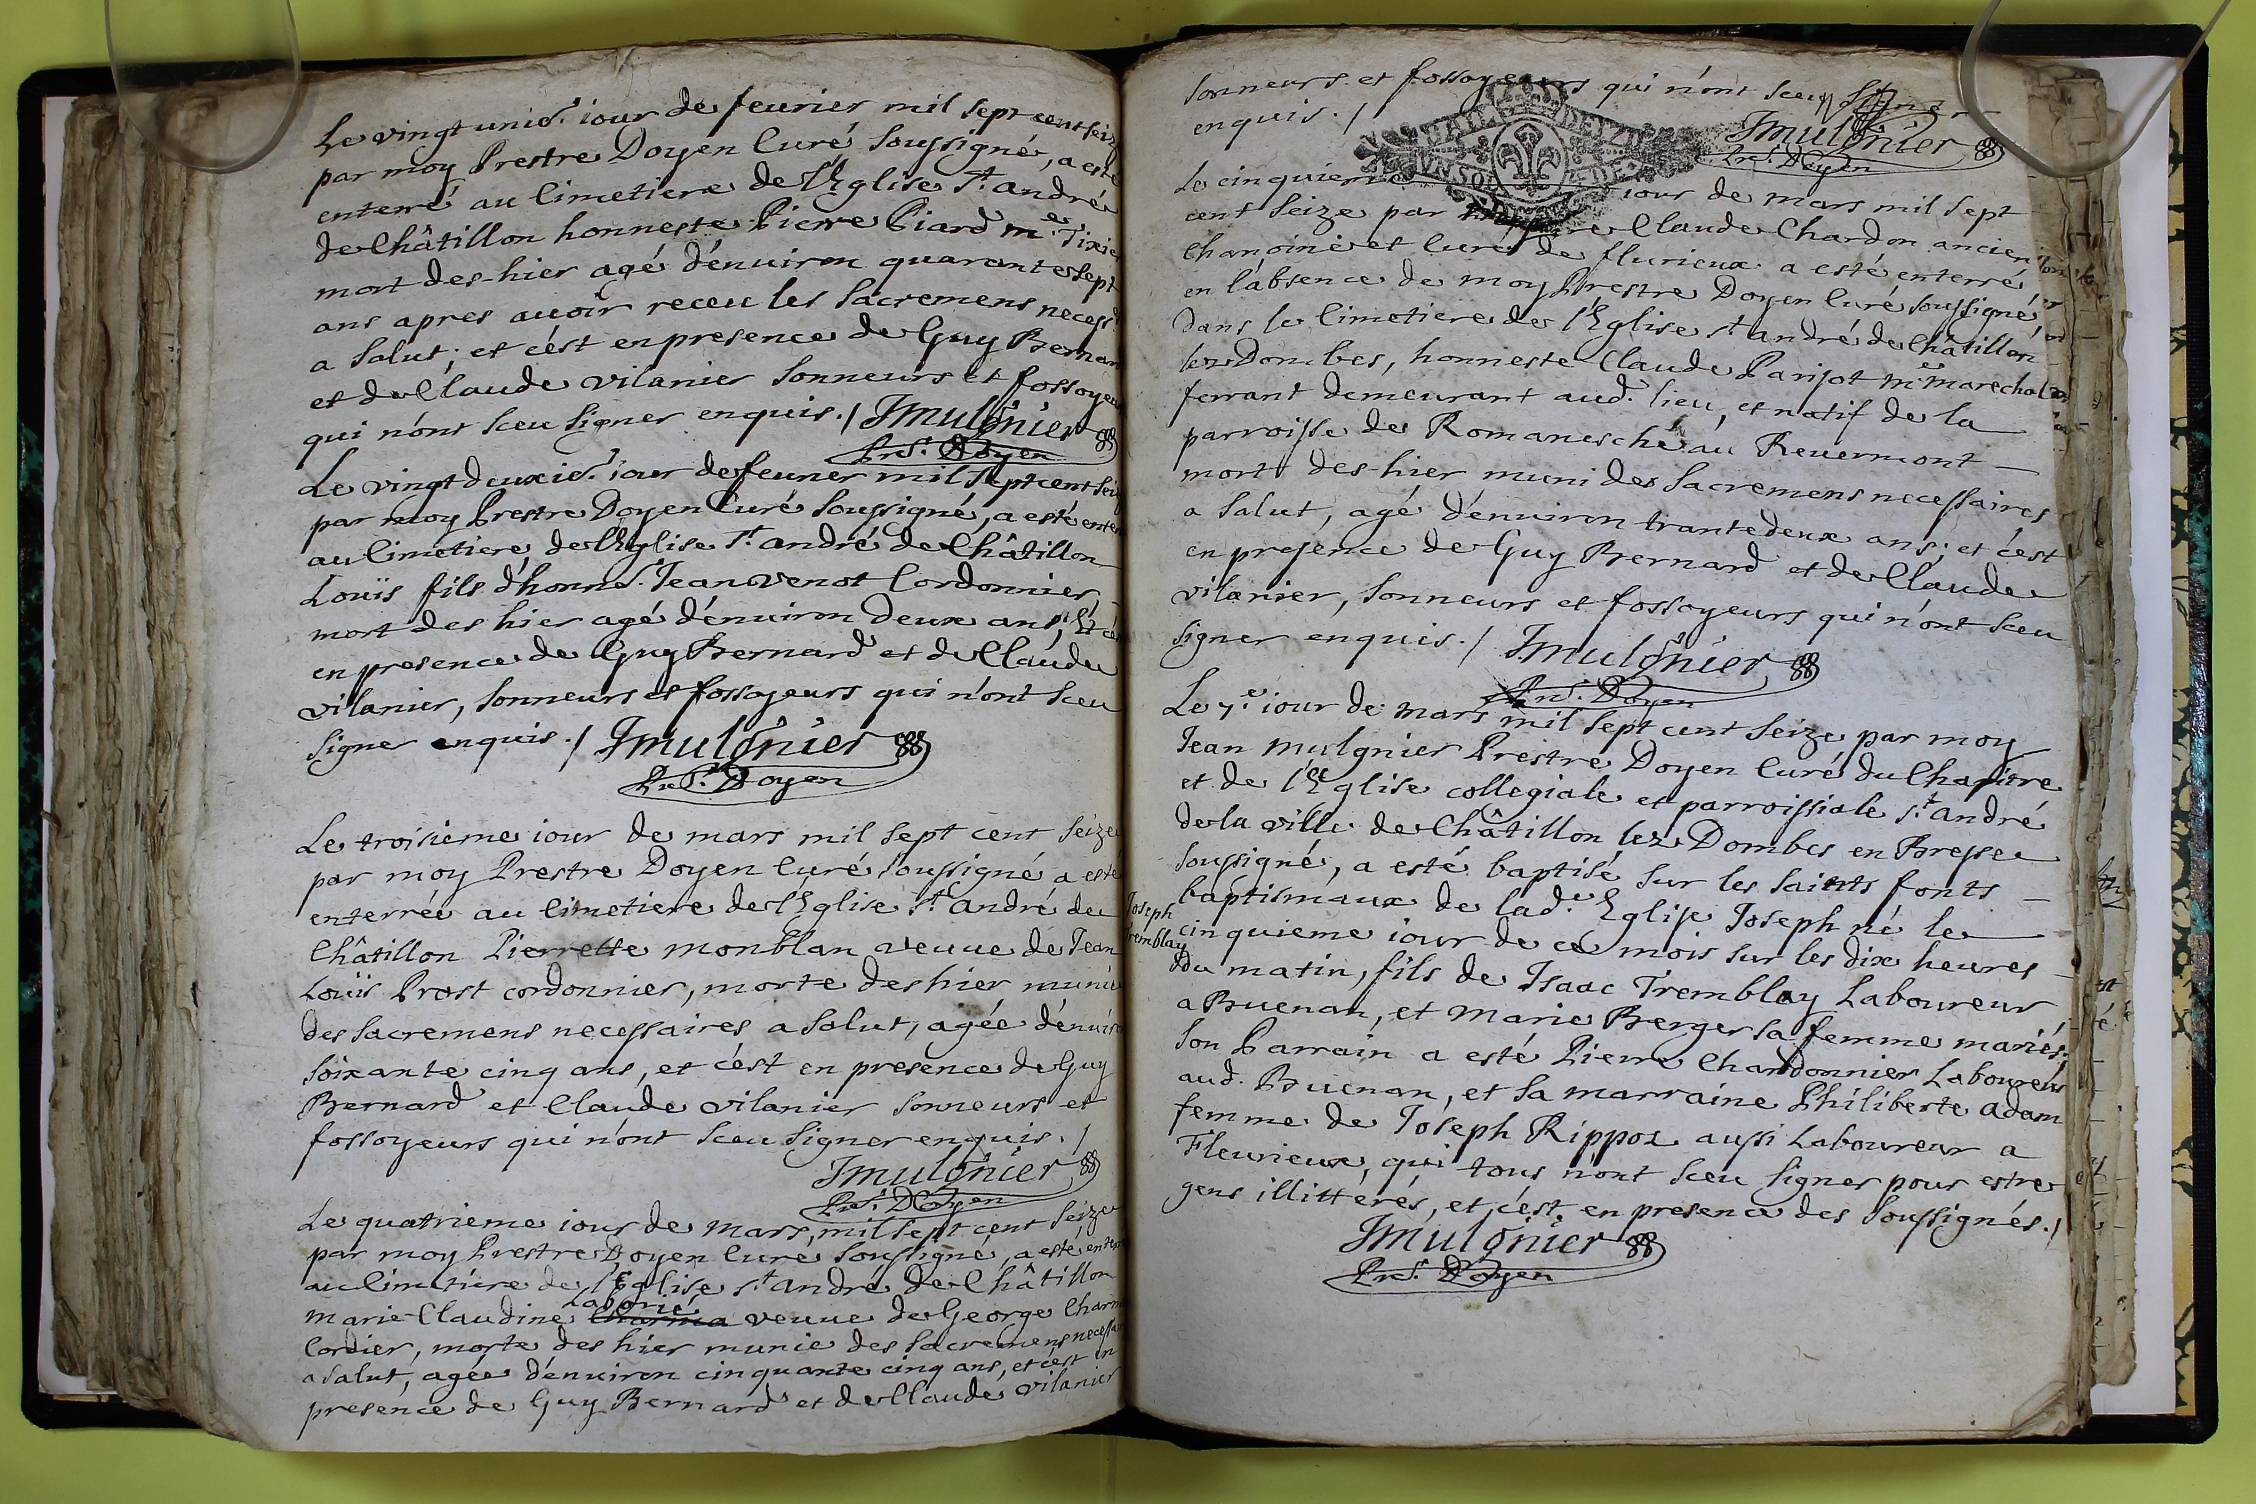 Le vingt unie.' iour de feurier mil sept cent seiz
par moy Prestre Doyen Curé soussigné, a esté
enterré au Cimetiere de l'Eglise St. andré
de Châtillon honneste Pierre Piard me. Tixier
mort des-hier agé d'enuiron quarante sept
ans apres auoir receu les sacremens necess
a salut; et c'est en presence de Guy Bernar
et de Claude vilanier sonneurs et fossoyeu
qui n'ont sceu signer enquis. / JMulgnier
Pre. Doyen
Le vingt deuxie.' iour de feurier mil sept cent sei
par moy Prestre Doyen Curé soussigné, a esté enter
au Cimetiere de l'Eglise St. andré de Châtillon
Loüis fils d'honne. Jean venot Cordonnier
mort des hier agé d'enuiron deux ans; Et c'es
en presence de Guy Bernard et de Claude
vilanier, sonneurs et fossoyeurs qui n'ont sceu
signer enquis. / JMulgnier
Pre. Doyen
Le troisieme iour de mars mil sept cent seize
par moy Prestre Doyen Curé soussigné a esté
enterrée au Cimetiere de l'Eglise St. andré de
Châtillon Pierrette monblan veuue de Jean
Loüis Prost cordonnier, morte des hier munie
des sacremens necessaires a salut, agée d'enuiro
soixante cinq ans, et c'est en presence de Guy
Bernard et Claude vilanier sonneurs et
fossoyeurs qui n'ont sceu signer enquis. /
JMulgnier
Pre. Doyen
Le quatrieme iour de mars, mil sept cent seize
par moy Prestre Doyen Curé soussigné, a esté enterr
au Cimetiere de l'Eglise St. andré de Châtillon
Laborié
marie-Claudine veuue de George Charm
Cordier, morte des hier munie des sacremens necessai
a salut, agée d'enuiron cinquante cinq ans, et c'est en
presence de Guy Bernard et de Claude vilanier
sonneurs et fossoyeurs qui n'ont sceu signer
enquis. /
JMulgnier
Pre. Doyen
Le cinquieme iour de mars mil sept
cent seize par Claude Chardon ancien
Chanoine et Curé de flurieux a esté enterré
en l'absence de moy Prestre Doyen Curé soussigné
dans le Cimetiere de l'Eglise St. andré de Châtillon
lez Dombes, honneste Claude Parisot me. marechal
ferrant demeurant aud. lieu, et natif de la
parroisse de Romanesche au Reuermont
mort des-hier muni des sacremens necessaires
a salut, agé d'enuiron trante deux ans; et c'est
en presence de Guy Bernard et de Claude
vilanier, sonneurs et fossoyeurs qui n'ont sceu
signer enquis. / JMulgnier
Pre. Doyen
Le 7.e iour de mars mil sept cent seize par moy
Jean mulgnier Prestre Doyen Curé du Chapitre
et de l'Eglise collegiale et parroissiale St. andré
de la ville de Châtillon lez Dombes en Bresse
soussigné, a esté baptisé sur les saints fonts
baptismaux de lad.e Eglise Joseph né le
Joseph
Tremblay
cinquieme iour de ce mois sur les dix heures
du matin, fils de Isaac Tremblay Laboureur
a Buenan, et Marie Berger sa femme mariés.
son Parrain a esté Pierre Chardonnier Laboureur
aud. Buenan, et sa marraine Philiberte adam
femme de Joseph Rippoz aussi Laboureur a
Fleurieux, qui tous n'ont sceu signer pour estre
gens illittérés, et c'est en presence des soussignés. /
JMulgnier
Pre. Doyen